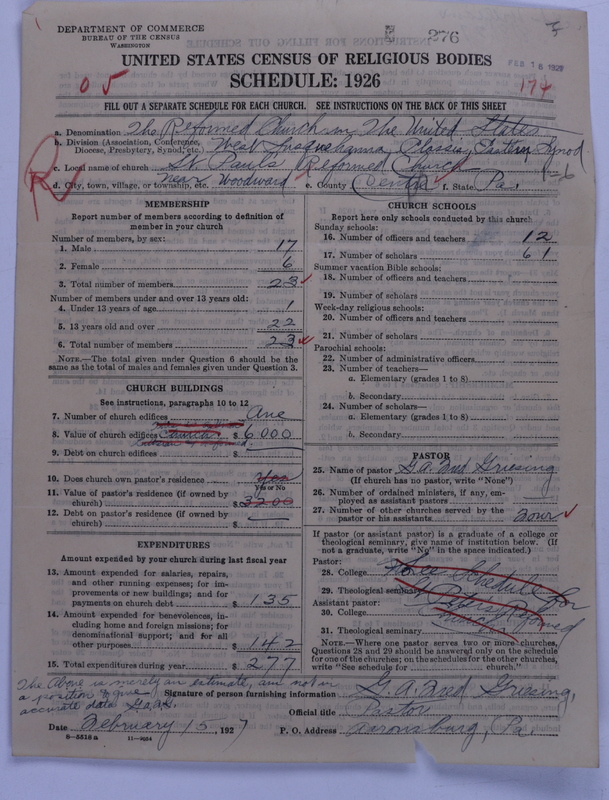 DEPARTMENT OF COMMERCE
BUREAU OF THE CENSUS
WASHINGTON
276
FEB 16 1927
UNITED STATES CENSUS OF RELIGIOUS BODIES
SCHEDULE: 1926
05
174
FILL OUT A SEPARATE SCHEDULE FOR EACH CHURCH. SEE INSTRUCTIONS ON THE BACK OF THIS SHEET
a. Denomination The Reformed Church in The United States
b. Division (Association, Conference, Diocese, Presbytery, Synod, etc.) West Susquehanna Classis, Eastern Synod
c. Local name of church St. Paul's Reformed Church
d. City, town, village, or township, etc. Near Woodward e. County Centre f. State Pa.
R
MEMBERSHIP
Report number of members according to definition of member in your church
Number of members, by sex:
1. Male 17
2. Female 6
3. Total number of members 23
Number of members under and over 13 years old:
4. Under 13 years of age 1
5. 13 years old and over 22
6. Total number of members 23
NOTE.—The total given under Question 6 should be the same as the total of males and females given under Question 3.
CHURCH BUILDINGS
See instructions, paragraphs 10 to 12
7. Number of church edifices One
8. Value of church edifices $ 6,000
9. Debt on church edifices $
10. Does church own pastor's residence Yes
Yes or No
11. Value of pastor's residence (if owned by church) $ 3200
12. Debt on pastor's residence (if owned by church) $
EXPENDITURES
Amount expended by your church during last fiscal year
13. Amount expended for salaries, repairs, and other running expenses; for improvements or new buildings; and for payments on church debt $ 135
14. Amount expended for benevolences, including home and foreign missions; for denominational support; and for all other purposes $ 142
15. Total expenditures during year $ 277
CHURCH SCHOOLS
Report here only schools conducted by this church
Sunday schools:
16. Number of officers and teachers 12
17. Number of scholars 61
Summer vacation Bible schools:
18. Number of officers and teachers
19. Number of scholars
Week-day religious schools:
20. Number of officers and teachers
21. Number of scholars
Parochial schools:
22. Number of administrative officers
23. Number of teachers—
a. Elementary (grades 1 to 8)
b. Secondary
24. Number of scholars—
a. Elementary (grades 1 to 8)
b. Secondary
PASTOR
25. Name of pastor G. A. Fred Griesing
(If church has no pastor, write "None")
26. Number of ordained ministers, if any, employed as assistant pastors
27. Number of other churches served by the pastor or his assistants Four
If pastor (or assistant pastor) is a graduate of a college or theological seminary, give name of institution below. (If not a graduate, write "No" in the space indicated.)
Pastor:
28. College
See Schedule for
29. Theological seminary
St Peters Reformed
Assistant pastor:
30. College
31. Theological seminary
NOTE.—Where one pastor serves two or more churches, Questions 28 and 29 should be answered only on the schedule for one of the churches; on the schedules for the other churches, write "See schedule for church."
The above is merely an estimate, am not in
a position to give
accurate data G.A.G.
Signature of person furnishing information G. A. Fred Griesing,
Official title Pastor
Date February 15, 1927 P. O. Address Aaronsburg, Pa
8—5518a 11—9054